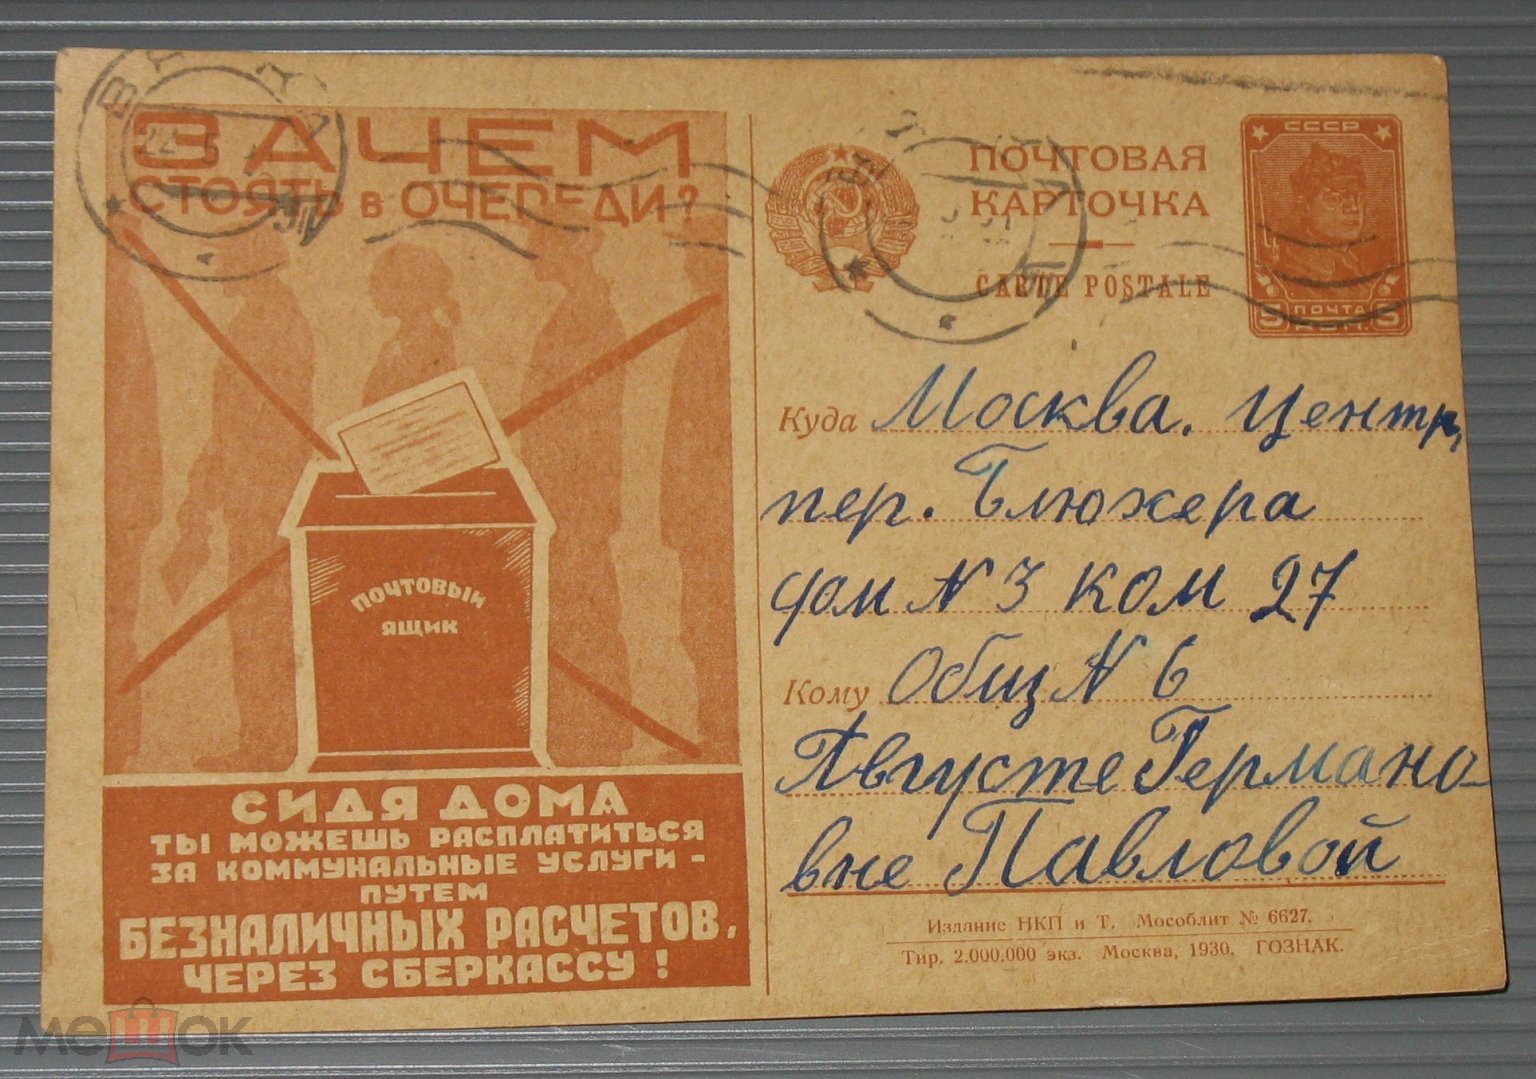 ЗАЧЕМ
СТОЯТЬ в ОЧЕРЕДИ?
ПОЧТОВЫЙ
ЯЩИК
СИДЯ ДОМА
ТЫ МОЖЕШЬ РАСПЛАТИТЬСЯ
ЗА КОММУНАЛЬНЫЕ УСЛУГИ –
ПУТЕМ
БЕЗНАЛИЧНЫХ РАСЧЕТОВ,
ЧЕРЕЗ СБЕРКАССУ !
ПОЧТОВАЯ
КАРТОЧКА
CARTE POSTALE
СССР
5 ПОЧТА 5
Куда Москва. Центр,
пер. Блюхера
дом N 3 ком 27
Кому Общ N 6
Августе Германо-
вне Павловой
Издание НКП и Т. Мособлит № 6627.
Тир. 2.000.000 экз. Москва, 1930. ГОЗНАК.
мешок